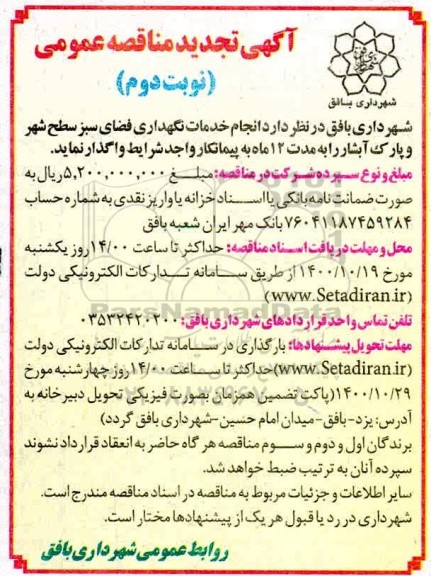 آگهی تجدید مناقصه عمومی
(نوبت دوم)
شهرداری بافق
شهرداری بافق در نظر دارد انجام خدمات نگهداری فضای سبز سطح شهر
و پارک آبشار را به مدت ۱۲ ماه به پیمانکار واجد شرایط واگذار نماید.
مبلغ و نوع سپرده شرکت در مناقصه: مبلغ ۵,۲۰۰,۰۰۰,۰۰۰ ریال به
صورت ضمانت نامه بانکی یا اسناد خزانه یا واریز نقدی به شماره حساب
۷۶۰۴۱۱۸۷۴۵۹۲۸۴ بانک مهر ایران شعبه بافق
محل و مهلت دریافت اسناد مناقصه: حداکثر تا ساعت ۱۴/۰۰ روز یکشنبه
مورخ ۱۴۰۰/۱۰/۱۹ از طریق سامانه تدارکات الکترونیکی دولت
(www.Setadiran.ir)
تلفن تماس واحد قراردادهای شهرداری بافق: ۰۳۵۳۲۴۲۰۲۰۰
مهلت تحویل پیشنهادها: بارگذاری در سامانه تدارکات الکترونیکی دولت
(www.Setadiran.ir) حداکثر تا ساعت ۱۴/۰۰ روز چهارشنبه مورخ
۱۴۰۰/۱۰/۲۹ (پاکت تضمین همزمان بصورت فیزیکی تحویل دبیرخانه به
آدرس: یزد-بافق-میدان امام حسین-شهرداری بافق گردد)
برندگان اول و دوم و سوم مناقصه هر گاه حاضر به انعقاد قرارداد نشوند
سپرده آنان به ترتیب ضبط خواهد شد.
سایر اطلاعات و جزئیات مربوط به مناقصه در اسناد مناقصه مندرج است.
شهرداری در رد یا قبول هر یک از پیشنهادها مختار است.
روابط عمومی شهرداری بافق